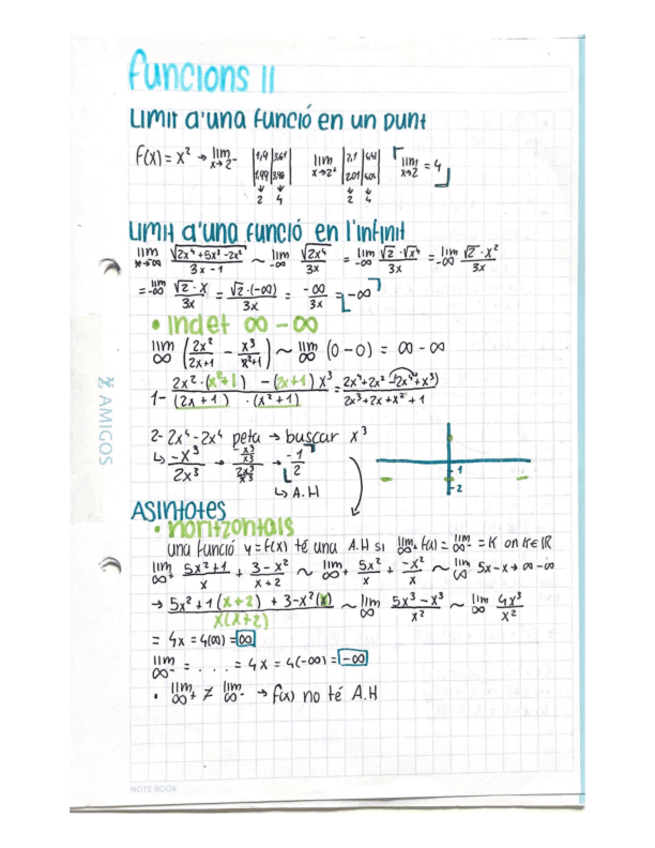 Funcions II
Limit d'una funció en un punt
f(x) = x² → lim x→2⁻ | 1,9 | 3,61 | 1,99 | 3,96 | lim x→2⁺ | 2,1 | 4,41 | 2,01 | 4,04 | lim x→2 = 4
↓ ↓ ↓ ↓
2 4 2 4
Limit d'una funció en l'infinit
lim x→-∞ √2x⁴+5x³-2x² / 3x-1 ~ lim -∞ √2x⁴ / 3x = lim -∞ √2·√x⁴ / 3x = lim -∞ √2·x² / 3x
= lim -∞ √2·x / 3x = √2·(-∞) / 3x = -∞ / 3x = -∞
• Indet ∞ - ∞
lim ∞ (2x² / 2x+1 - x³ / x²+1) ~ lim ∞ (∞-∞) = ∞ - ∞
1- 2x²·(x²+1) - (2x+1)x³ / (2x+1)·(x²+1) = 2x⁴+2x²-(2x⁴+x³) / 2x³+2x+x²+1
2- 2x⁴-2x⁴ peta → buscar x³
↳ -x³ / 2x³ → -x³/x³ / 2x³/x³ → -1 / 2
↳ A.H
-1
-2
Asintotes
• Horitzontals
una funció y=f(x) té una A.H si lim ∞+ f(x) = lim ∞- = K on K∈ℝ
lim ∞+ 5x²+1 / x + 3-x² / x+2 ~ lim ∞+ 5x² / x + -x² / x ~ lim ∞ 5x-x → ∞-∞
→ 5x²+1(x+2) + 3-x²(x) / x(x+2) ~ lim ∞ 5x³-x³ / x² ~ lim ∞ 4x³ / x²
= 4x = 4(∞) = ∞
lim ∞- = . . . . = 4x = 4(-∞) = -∞
• lim ∞+ ≠ lim ∞- → f(x) no té A.H
AMIGOS
NOTE BOOK